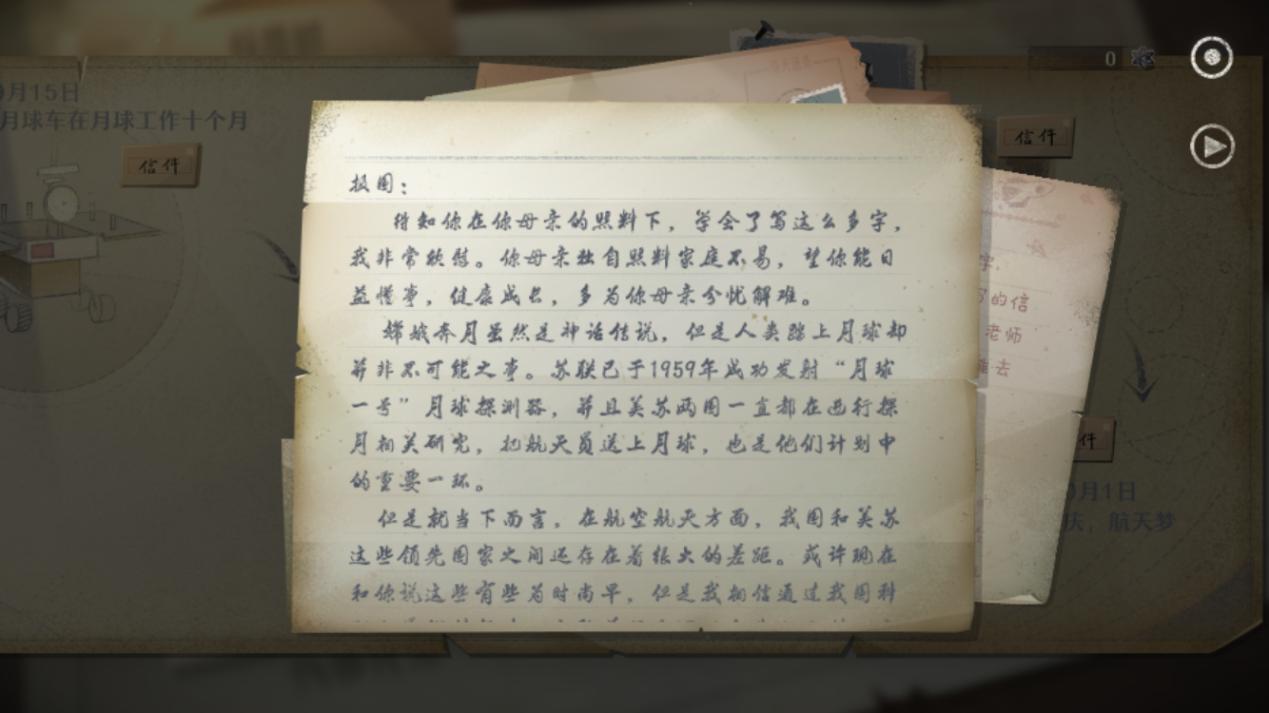 0
9月15日
月球车在月球工作十个月
信件
信件
报国：
得知你在你母亲的照料下，学会了写这么多字，
我非常欣慰。你母亲独自照料家庭不易，望你能日
益懂事，健康成长，多为你母亲分忧解难。
嫦娥奔月虽然是神话传说，但是人类踏上月球却
并非不可能之事。苏联已于1959年成功发射“月球
一号”月球探测器，并且美苏两国一直都在进行探
月相关研究，把航天员送上月球，也是他们计划中
的重要一环。
但是就当下而言，在航空航天方面，我国和美苏
这些领先国家之间还存在着很大的差距。或许现在
和你说这些有些为时尚早，但是我相信通过我国科
字，
写的信
老师
去
件
月1日
庆，航天梦